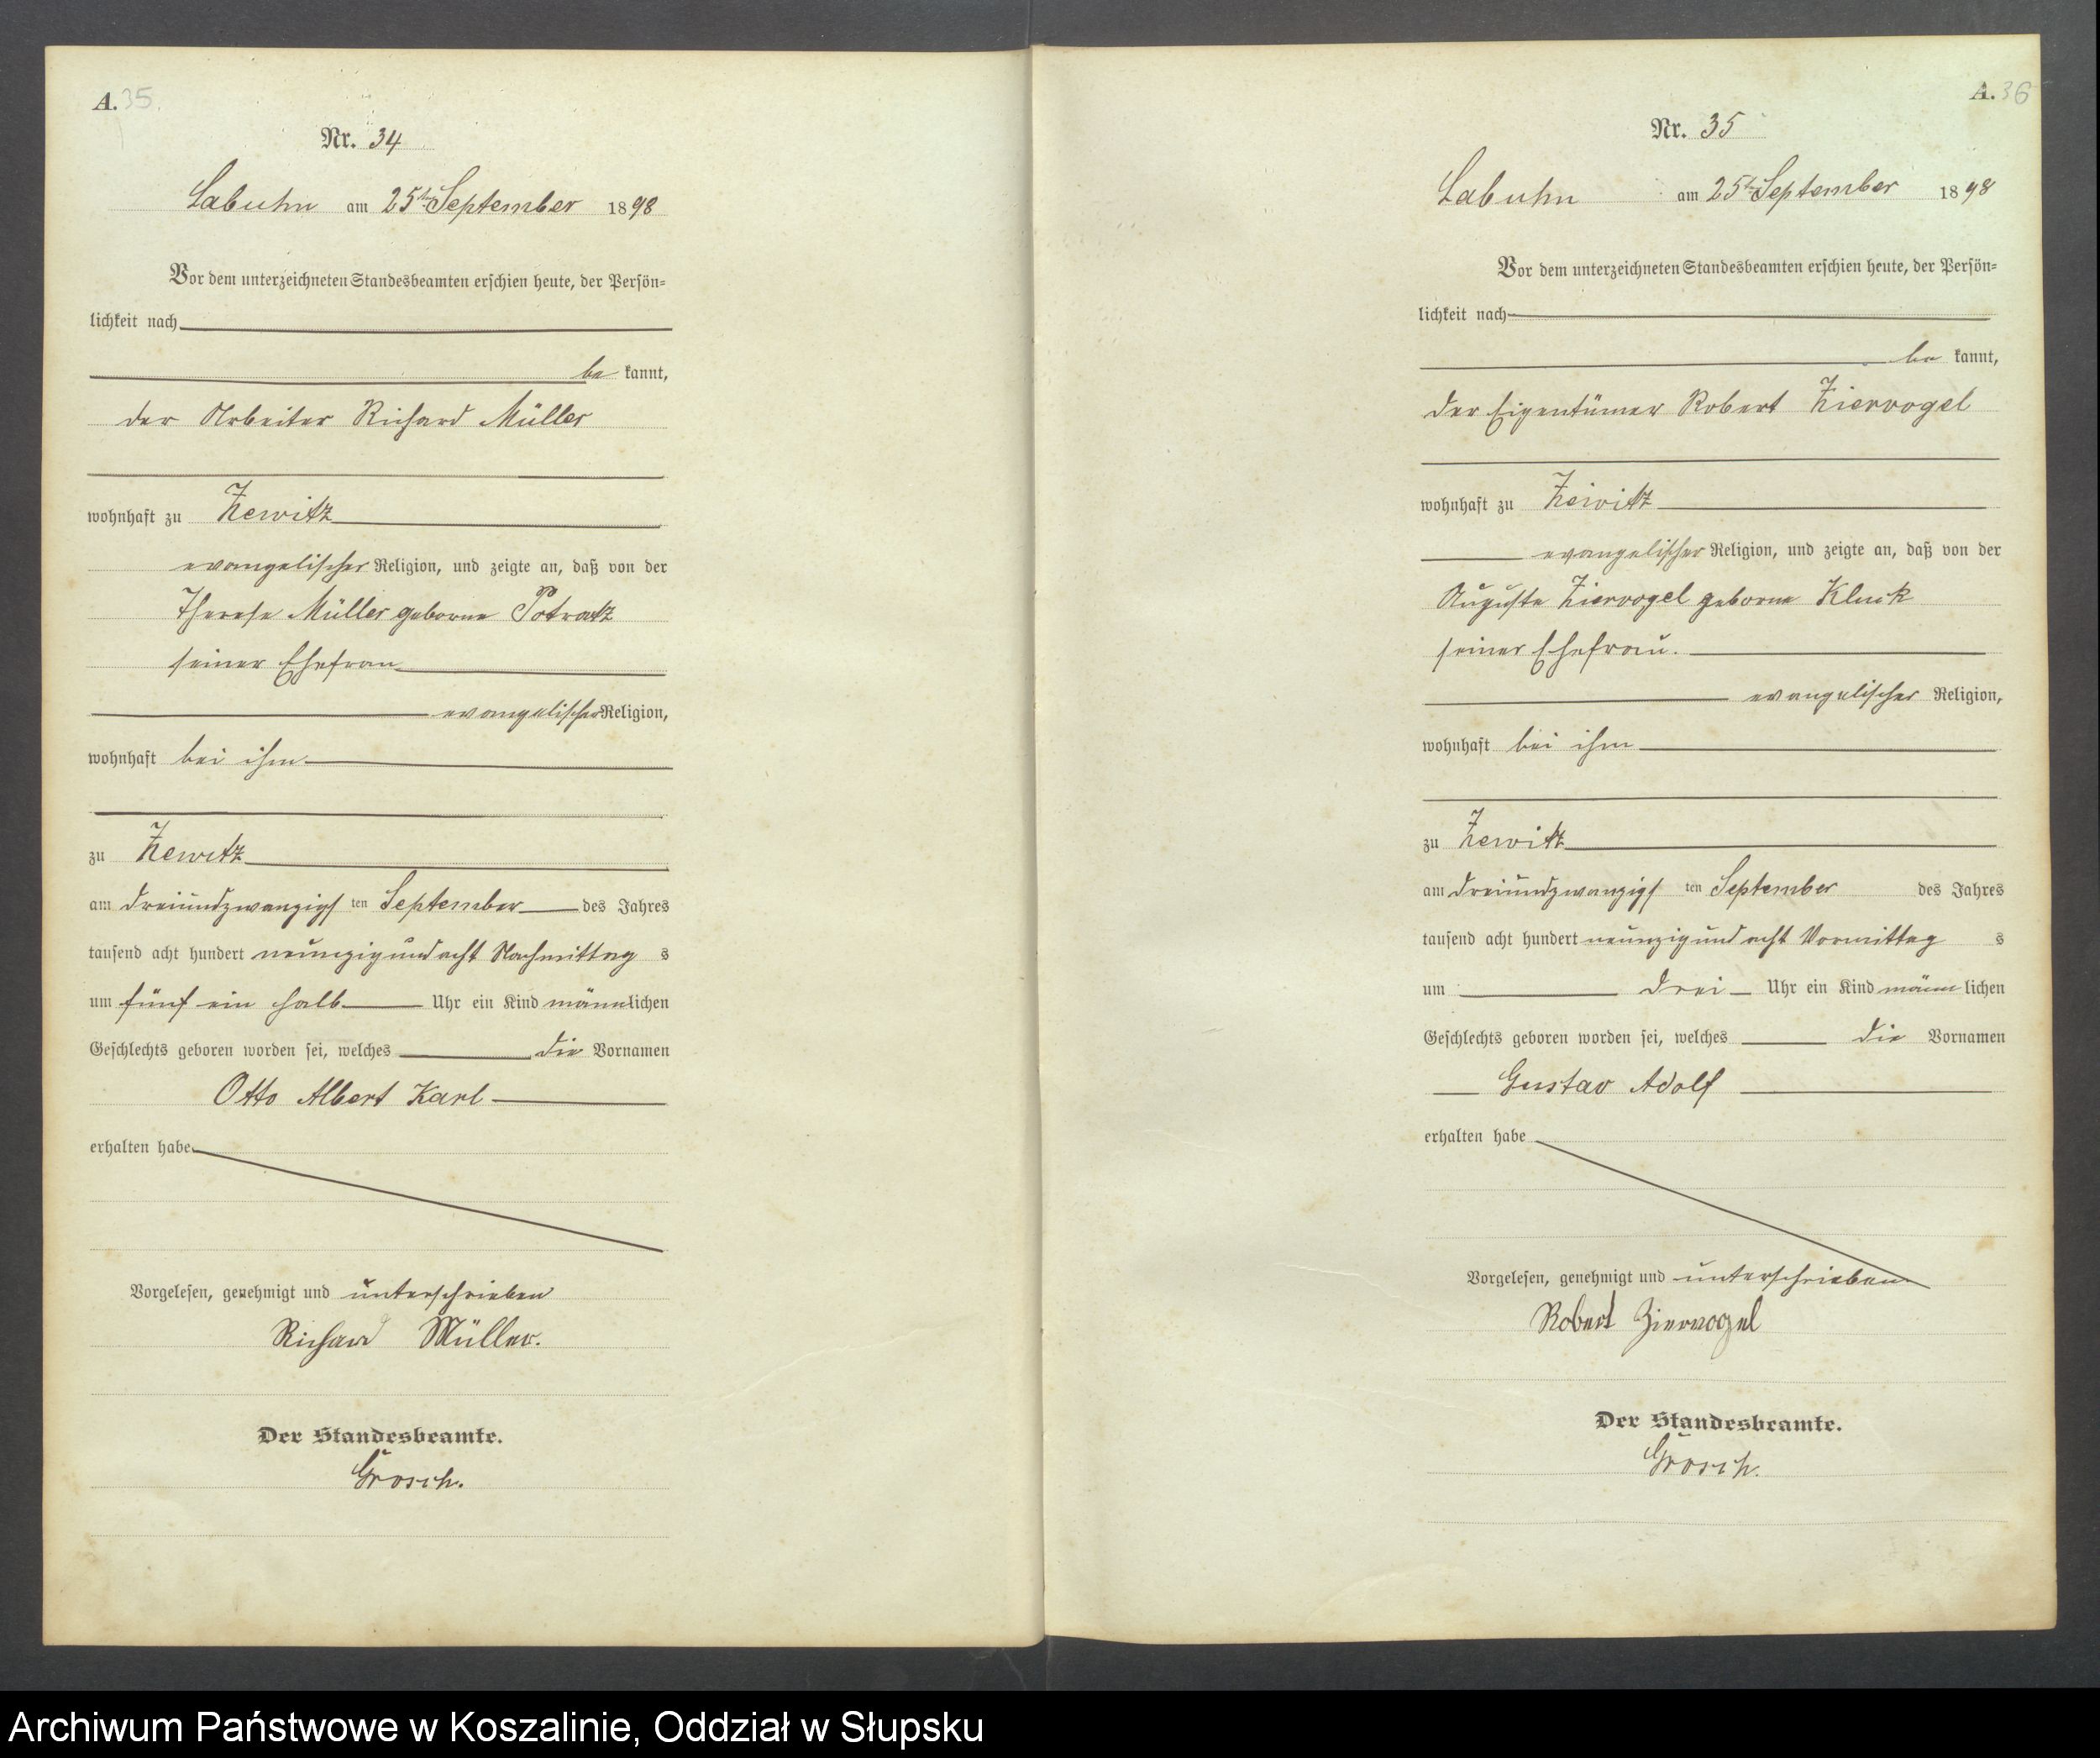 A. 35.
Nr. 34
Labuhn am 25ten September 1898
Vor dem unterzeichneten Standesbeamten erschien heute, der Persön-
lichkeit nach
be kannt,
der Arbeiter Richard Müller
wohnhaft zu Zewitz
evangelischer Religion, und zeigte an, daß von der
Therese Müller geborne Potratz
seiner Ehefrau
evangelischer Religion,
wohnhaft bei ihm
zu Zewitz
am dreiundzwanzigsten September des Jahres
tausend acht hundert neunzig und acht Nachmittag s
um fünf ein halb Uhr ein Kind männlichen
Geschlechts geboren worden sei, welches die Vornamen
Otto Albert Karl
erhalten habe
Vorgelesen, genehmigt und unterschrieben
Richard Müller.
Der Standesbeamte.
Grosch.
A. 36
Nr. 35
Labuhn am 25ten September 1898
Vor dem unterzeichneten Standesbeamten erschien heute, der Persön-
lichkeit nach
be kannt,
der Eigentümer Robert Ziervogel
wohnhaft zu Zewitz
evangelischer Religion, und zeigte an, daß von der
Auguste Ziervogel geborne Kluck
seiner Ehefrau.
evangelischer Religion,
wohnhaft bei ihm
zu Zewitz
am dreiundzwanzigsten September des Jahres
tausend acht hundert neunzig und acht Vormittag s
um drei Uhr ein Kind männlichen
Geschlechts geboren worden sei, welches die Vornamen
Gustav Adolf
erhalten habe
Vorgelesen, genehmigt und unterschrieben
Robert Ziervogel
Der Standesbeamte.
Grosch.
Archiwum Państwowe w Koszalinie, Oddział w Słupsku